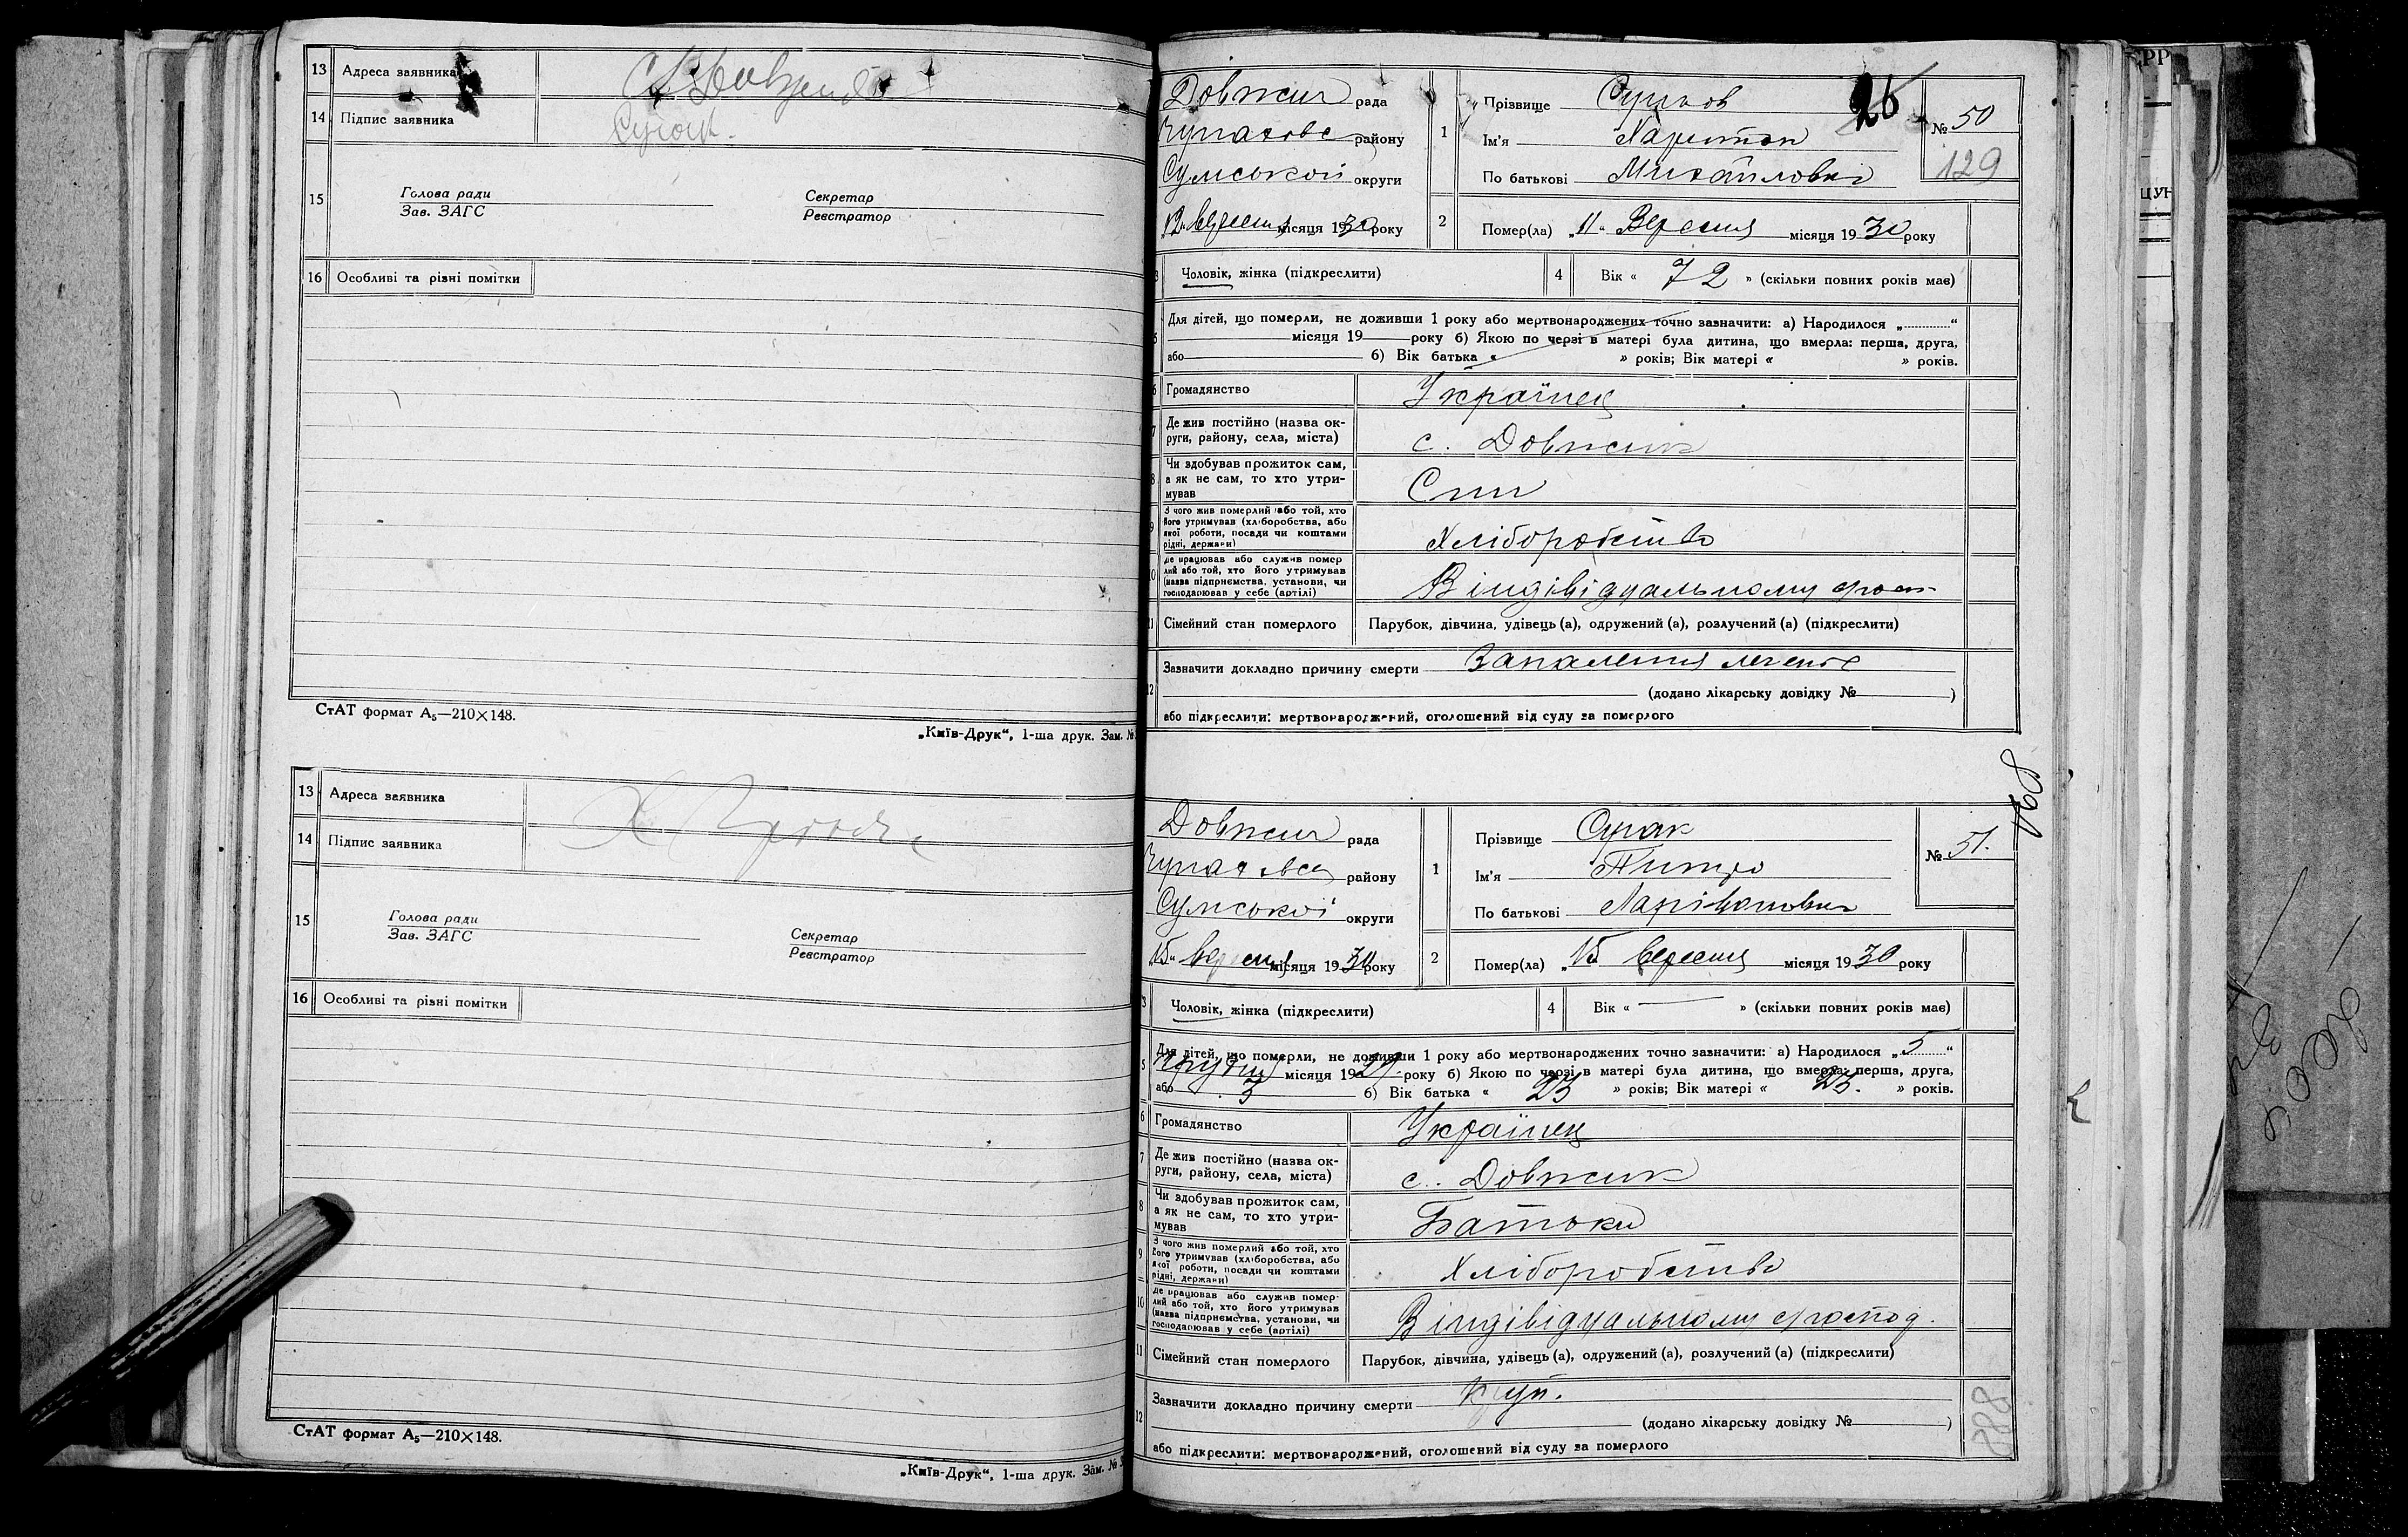 13 Адреса заявника
14 Підпис заявника
15 Голова ради
Зав. ЗАГС
Секретар
Реєстратор
16 Особливі та різні помітки
СтАТ формат А₅—210×148.
„Київ-Друк“, 1-ша друк. Зам. №
13 Адреса заявника
14 Підпис заявника
15 Голова ради
Зав. ЗАГС
Секретар
Реєстратор
16 Особливі та різні помітки
СтАТ формат А₅—210×148.
„Київ-Друк“, 1-ша друк. Зам. №
26
Довжик рада
району
Сумської округи
„12“ вересня місяця 1930 року
1 Прізвище
Ім'я Харитон
По батькові Михайлович
№ 50
129
2 Помер(ла) „11“ Вересня місяця 1930 року
3 Чоловік, жінка (підкреслити)
4 Вік « 72 » (скільки повних років має)
5 Для дітей, що померли, не доживши 1 року або мертвонароджених точно зазначити: а) Народилося „ “
місяця 19 року б) Якою по черзі в матері була дитина, що вмерла: перша, друга,
або б) Вік батька « » років; Вік матері « » років.
6 Громадянство Українец
7 Де жив постійно (назва округи, району, села, міста) с. Довжик
8 Чи здобував прожиток сам, а як не сам, то хто утримував Син
9 З чого жив померлий або той, хто його утримував (хліборобства, або якої роботи, посади чи коштами рідні, держави) Хліборобство
10 Де працював або служив померлий або той, хто його утримував (назва підприємства, установи, чи господарював у себе (артілі) В індівідуальному
11 Сімейний стан померлого Парубок, дівчина, удівець (а), одружений (а), розлучений (а) (підкреслити)
12 Зазначити докладно причину смерти Запалення легенів
(додано лікарську довідку № )
або підкреслити: мертвонароджений, оголошений від суду за померлого
168
Довжик рада
району
Сумської округи
„15“ вересня місяця 1930 року
1 Прізвище Сулак
Ім'я Питро
По батькові Ларівонович
№ 51.
2 Помер(ла) „15 вересня місяця 1930 року
3 Чоловік, жінка (підкреслити)
4 Вік « — » (скільки повних років має)
5 Для дітей, що померли, не доживши 1 року або мертвонароджених точно зазначити: а) Народилося „5“
Грудня місяця 1929 року б) Якою по черзі в матері була дитина, що вмерла: перша, друга,
або 3 б) Вік батька « 23 » років; Вік матері « 23. » років.
6 Громадянство Українец
7 Де жив постійно (назва округи, району, села, міста) с. Довжик
8 Чи здобував прожиток сам, а як не сам, то хто утримував Батьки
9 З чого жив померлий або той, хто його утримував (хліборобства, або якої роботи, посади чи коштами рідні, держави) Хліборобство
10 Де працював або служив померлий або той, хто його утримував (назва підприємства, установи, чи господарював у себе (артілі) В індівідуальному господ.
11 Сімейний стан померлого Парубок, дівчина, удівець (а), одружений (а), розлучений (а) (підкреслити)
12 Зазначити докладно причину смерти Круп.
(додано лікарську довідку № )
або підкреслити: мертвонароджений, оголошений від суду за померлого